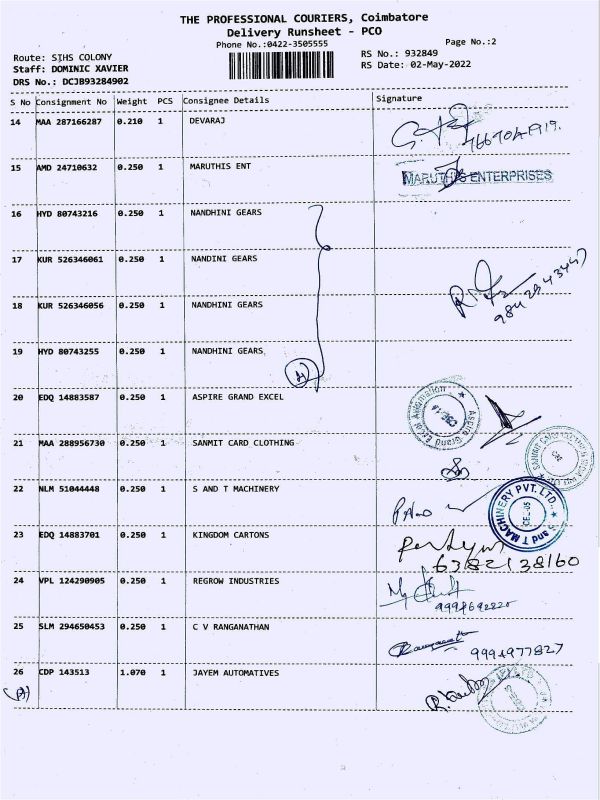 THE PROFESSIONAL COURIERS, Coimbatore
Delivery Runsheet - PCO
Phone No.:0422-3505555
Page No.:2
Route: SIHS COLONY
RS No.: 932849
Staff: DOMINIC XAVIER
RS Date: 02-May-2022
DRS No.: DCJB93284902
S No Consignment No Weight PCS Consignee Details Signature
14 MAA 287166287 0.210 1 DEVARAJ
15 AMD 24710632 0.250 1 MARUTHIS ENT
MARUTHIS ENTERPRISES
16 HYD 80743216 0.250 1 NANDHINI GEARS
17 KUR 526346061 0.250 1 NANDINI GEARS
18 KUR 526346056 0.250 1 NANDHINI GEARS
19 HYD 80743255 0.250 1 NANDHINI GEARS
20 EDQ 14883587 0.250 1 ASPIRE GRAND EXCEL
Aspire Grand Excel Automation
21 MAA 288956730 0.250 1 SANMIT CARD CLOTHING
22 NLM 51044448 0.250 1 S AND T MACHINERY
S and T MACHINERY PVT. LTD.
CBE-05
23 EDQ 14883701 0.250 1 KINGDOM CARTONS
6382138160
24 VPL 124290905 0.250 1 REGROW INDUSTRIES
25 SLM 294650453 0.250 1 C V RANGANATHAN
9994977827
26 CDP 143513 1.070 1 JAYEM AUTOMATIVES